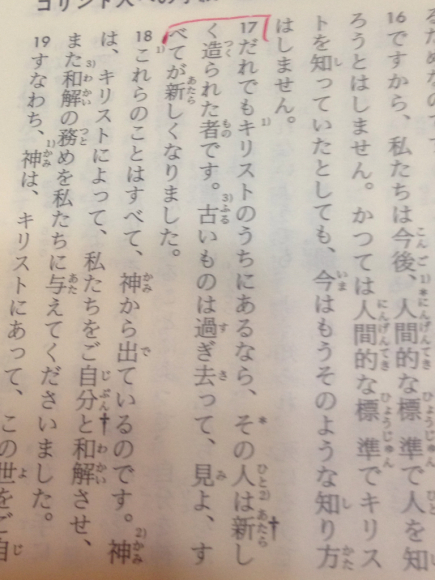 16ですから、私たちは今後、人間的な標準で人を知
ろうとはしません。かつては人間的な標準でキリス
トを知っていたとしても、今はもうそのような知り方
はしません。
17だれでもキリストのうちにあるなら、その人は新し
く造られた者です。古いものは過ぎ去って、見よ、す
べてが新しくなりました。
18これらのことはすべて、神から出ているのです。神
は、キリストによって、私たちをご自分と和解させ、
また和解の務めを私たちに与えてくださいました。
19すなわち、神は、キリストにあって、この世をご自